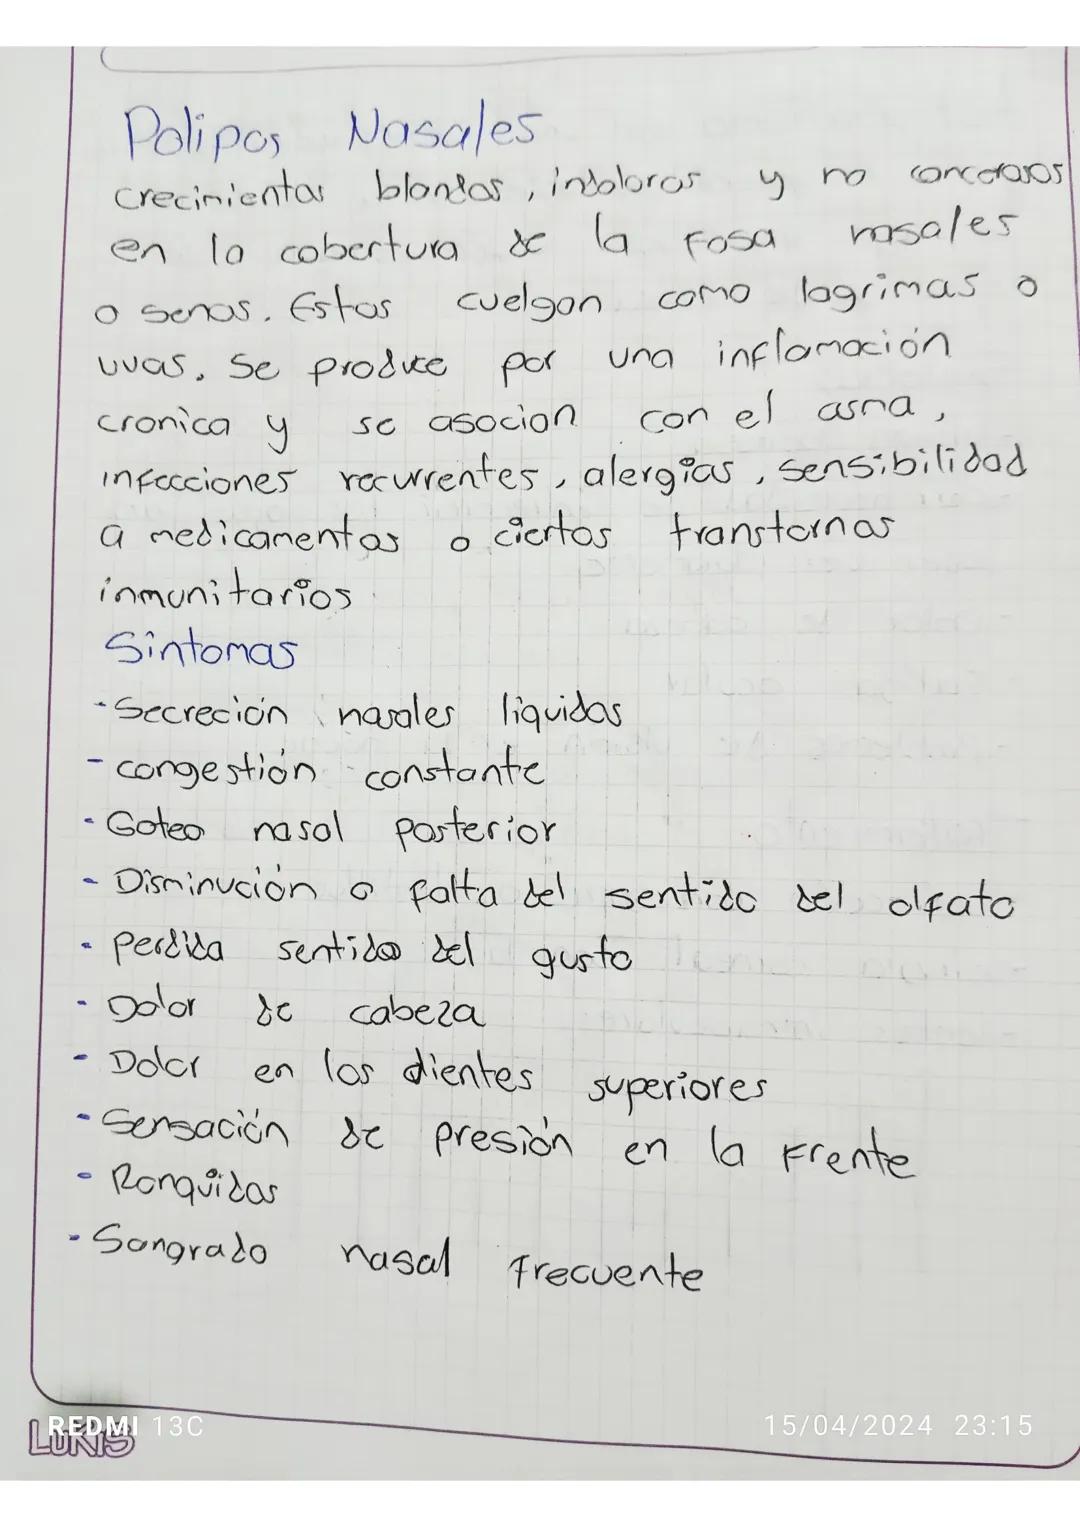 Polipos Nasales
crecimientos blandos, indoloros y no cancerosos
en la cobertura de la fosa nasales
o senos. Estos cuelgan como lagrimas o
uvas. Se produce por una inflamación
cronica y se asocian con el asma,
infecciones recurrentes, alergias, sensibilidad
a medicamentos o ciertos transtornos
inmunitarios
Sintomas
- Secreción nasales liquidas
- congestión constante
- Goteo nasal posterior
- Disminución o falta del sentido del olfato
- perdida sentido del gusto
- Dolor de cabeza
- Dolor en los dientes superiores
- Sensación de presión en la frente
- Ronquidos
- Sangrado nasal frecuente
REDMI 13C 15/04/2024 23:15
LUKIS